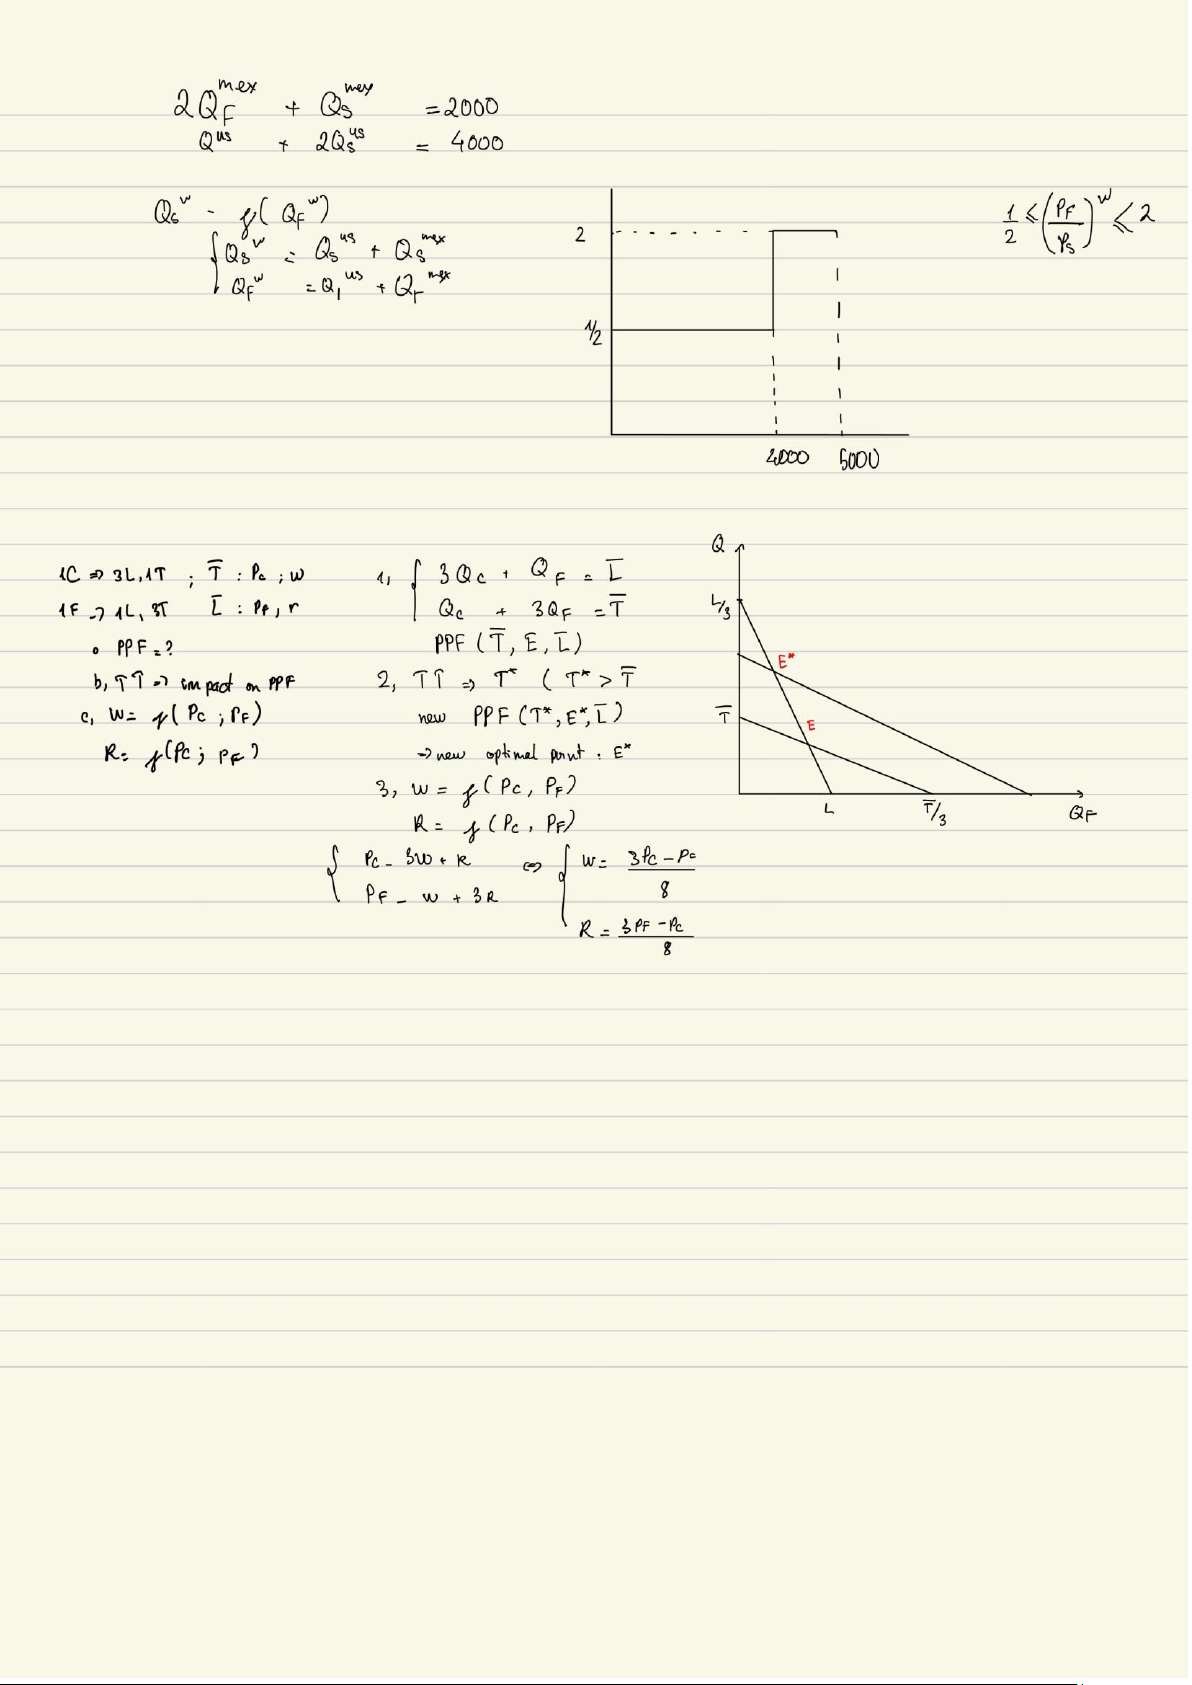 2Q_F^mex + Q_S^mex = 2000
Q^us + 2Q_S^us = 4000
Q_S^w - f(Q_F^w)
Q_S^w = Q_S^us + Q_S^mex
Q_F^w = Q_F^us + Q_F^mex
2
1/2
4000 5000
1/2 ≤ (P_F/P_S)^w ≤ 2
1C => 3L, 1T ; T̅ : Pc ; w
1F -> 1L, 3T L̅ : PF, r
• PPF = ?
b, T↑ => impact on PPF
c, W = f(Pc ; PF)
R = f(Pc ; PF)
1, 3Qc + QF = L̅
Qc + 3QF = T̅
PPF (T̅, E, L̅)
2, T↑ => T* (T* > T̅
new PPF (T*, E*, L̅)
-> new optimal point : E*
3, w = f(Pc, PF)
R = f(Pc, PF)
Pc - 3w + R <=> w = (3Pc - PF)/8
PF - w + 3R
R = (3PF - Pc)/8
Q
L/3
E*
T̅
E
L T̅/3 QF